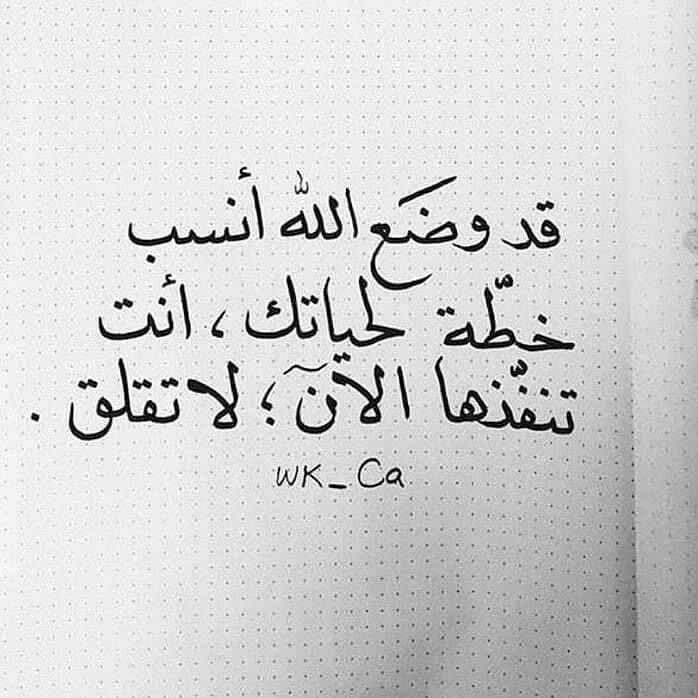 قد وضَع الله أنسب
خطّة لحياتك ، أنت
تنفّذها الآن ؛ لا تقلق .
WK_Ca